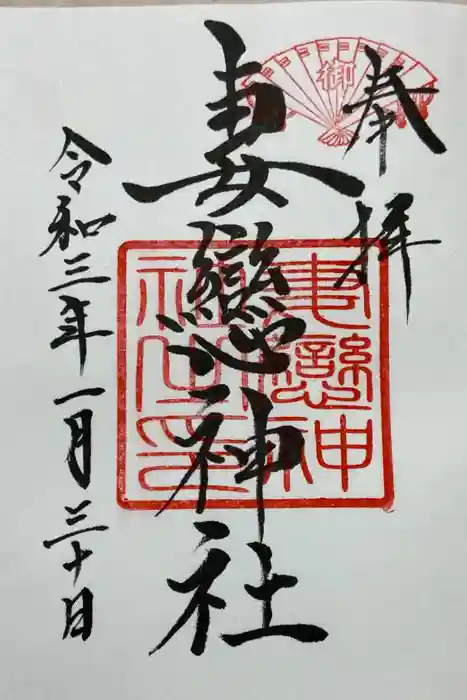 奉拝
妻戀神社
令和三年一月三十日
御
妻戀神
社之印